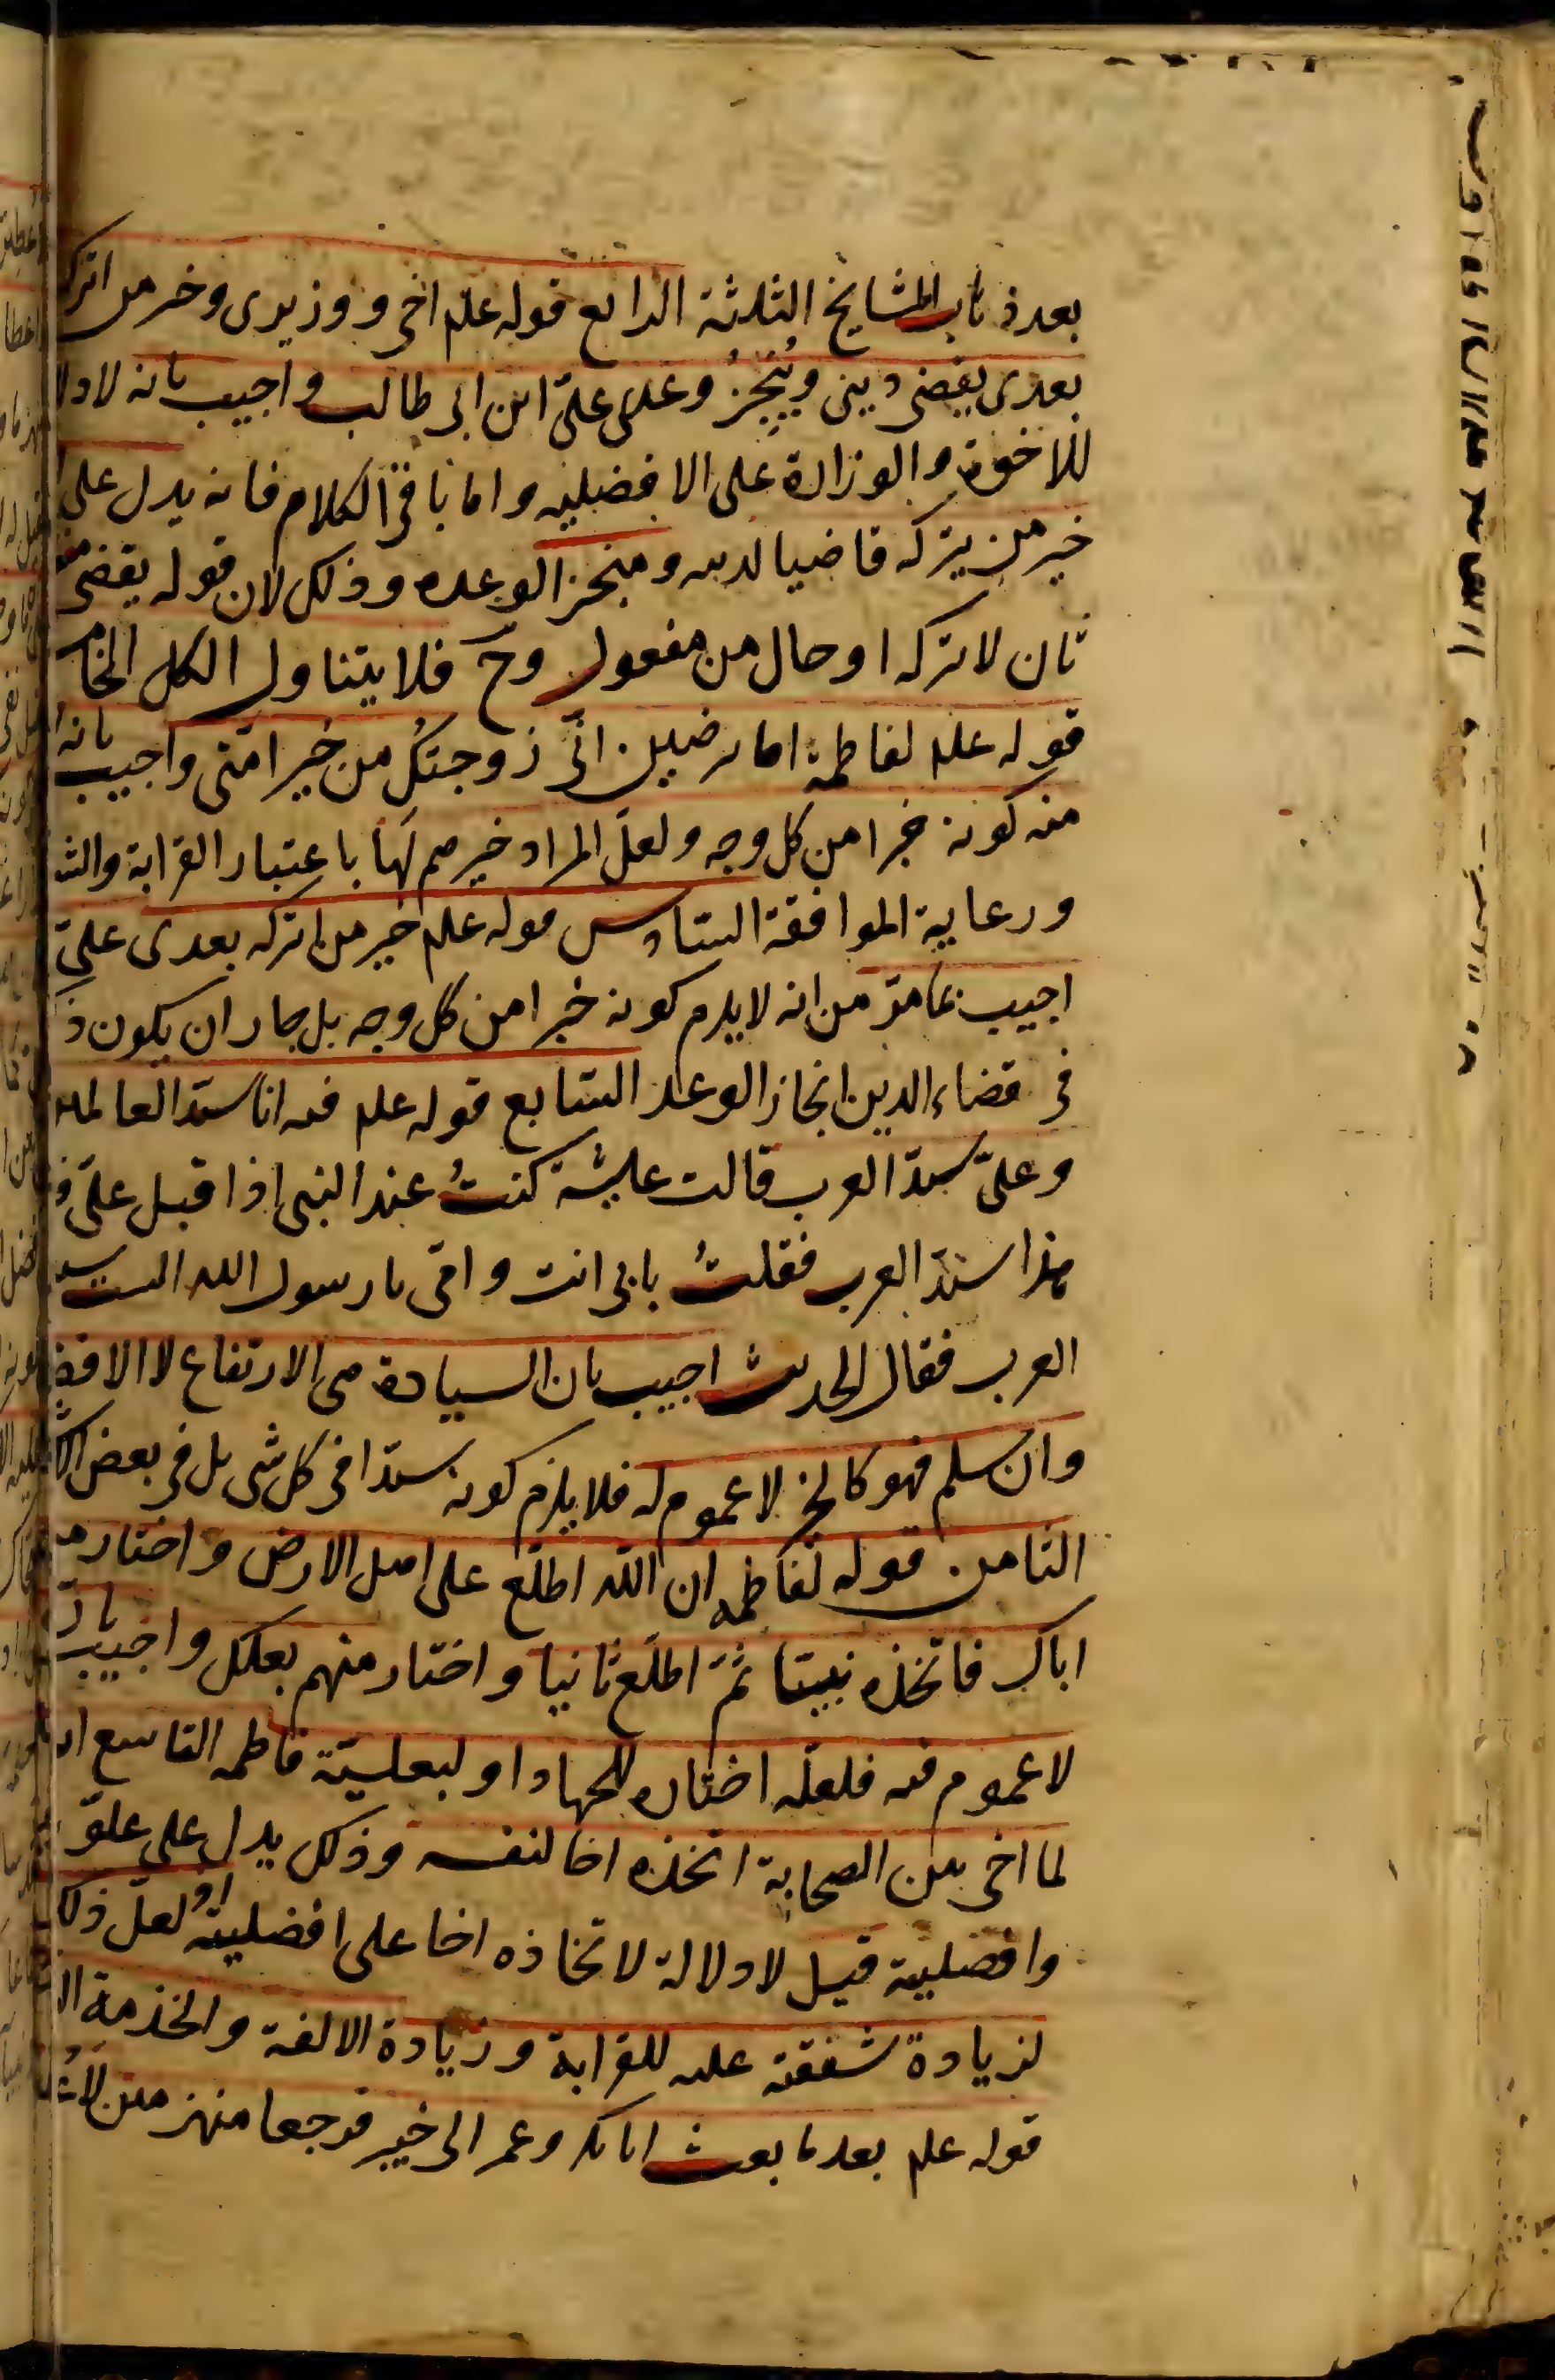 بعد ذهاب المشايخ الثلثة الرابع قوله علم اخى ووزيرى وخير من اتركه
بعدى يقضى دينى وينجز وعدى على ابن ابى طالب واجيب بانه لا دلا
للاخوة والوزارة على الافضلية واما باقى الكلام فانه يدل على
خير من يتركه قاضيا لدينه ومنجز الوعده وذلك لان قوله يقضى
ثان لاتركه او حال من مفعول وح فلا يتناول الكل الخامس
قوله علم لفاطمة اما ترضين انى زوجتك من خير امتى واجيب بانه
منه كونه خيرا من كل وجه ولعل المراد خيرهم لها باعتبار القرابة والش
ورعاية الموافقة السادس قوله علم خير من اتركه بعدى على
اجيب بما مر من انه لا يلزم كونه خيرا من كل وجه بل جاز ان يكون ذ
فى قضاء الدين انجاز الوعد السابع قوله علم فيه انا سيد العالمين
وعلى سيد العرب قالت عايشة كنت عند النبى اذ اقبل على
هذا سيد العرب فقلت بابى انت وامى يا رسول الله الست سيد
العرب فقال الحديث اجيب بان السيادة هى الارتفاع لا الافض
وان سلم فهو كالخير لا عموم له فلا يلزم كونه سيدا فى كل شى بل فى بعض الا
الثامن قوله لفاطمه ان الله اطلع على اهل الارض واختار منهم
اباك فاتخذه نبيا ثم اطلع ثانيا واختار منهم بعلك واجيب بان
لا عموم فيه فلعله اختاره للجهاد او لبعلية فاطمه التاسع انه
لما اخى بين الصحابة اتخذه اخا لنفسه وذلك يدل على علو
وافضليته قيل لا دلالة لاتخاذه اخا على افضليته او لعل ذلك
لزيادة شفقته عليه للقرابة وزيادة الالفة والخدمة ال
قوله علم بعد ما بعث ابا بكر وعمر الى خيبر فرجعا منهزمين لاع